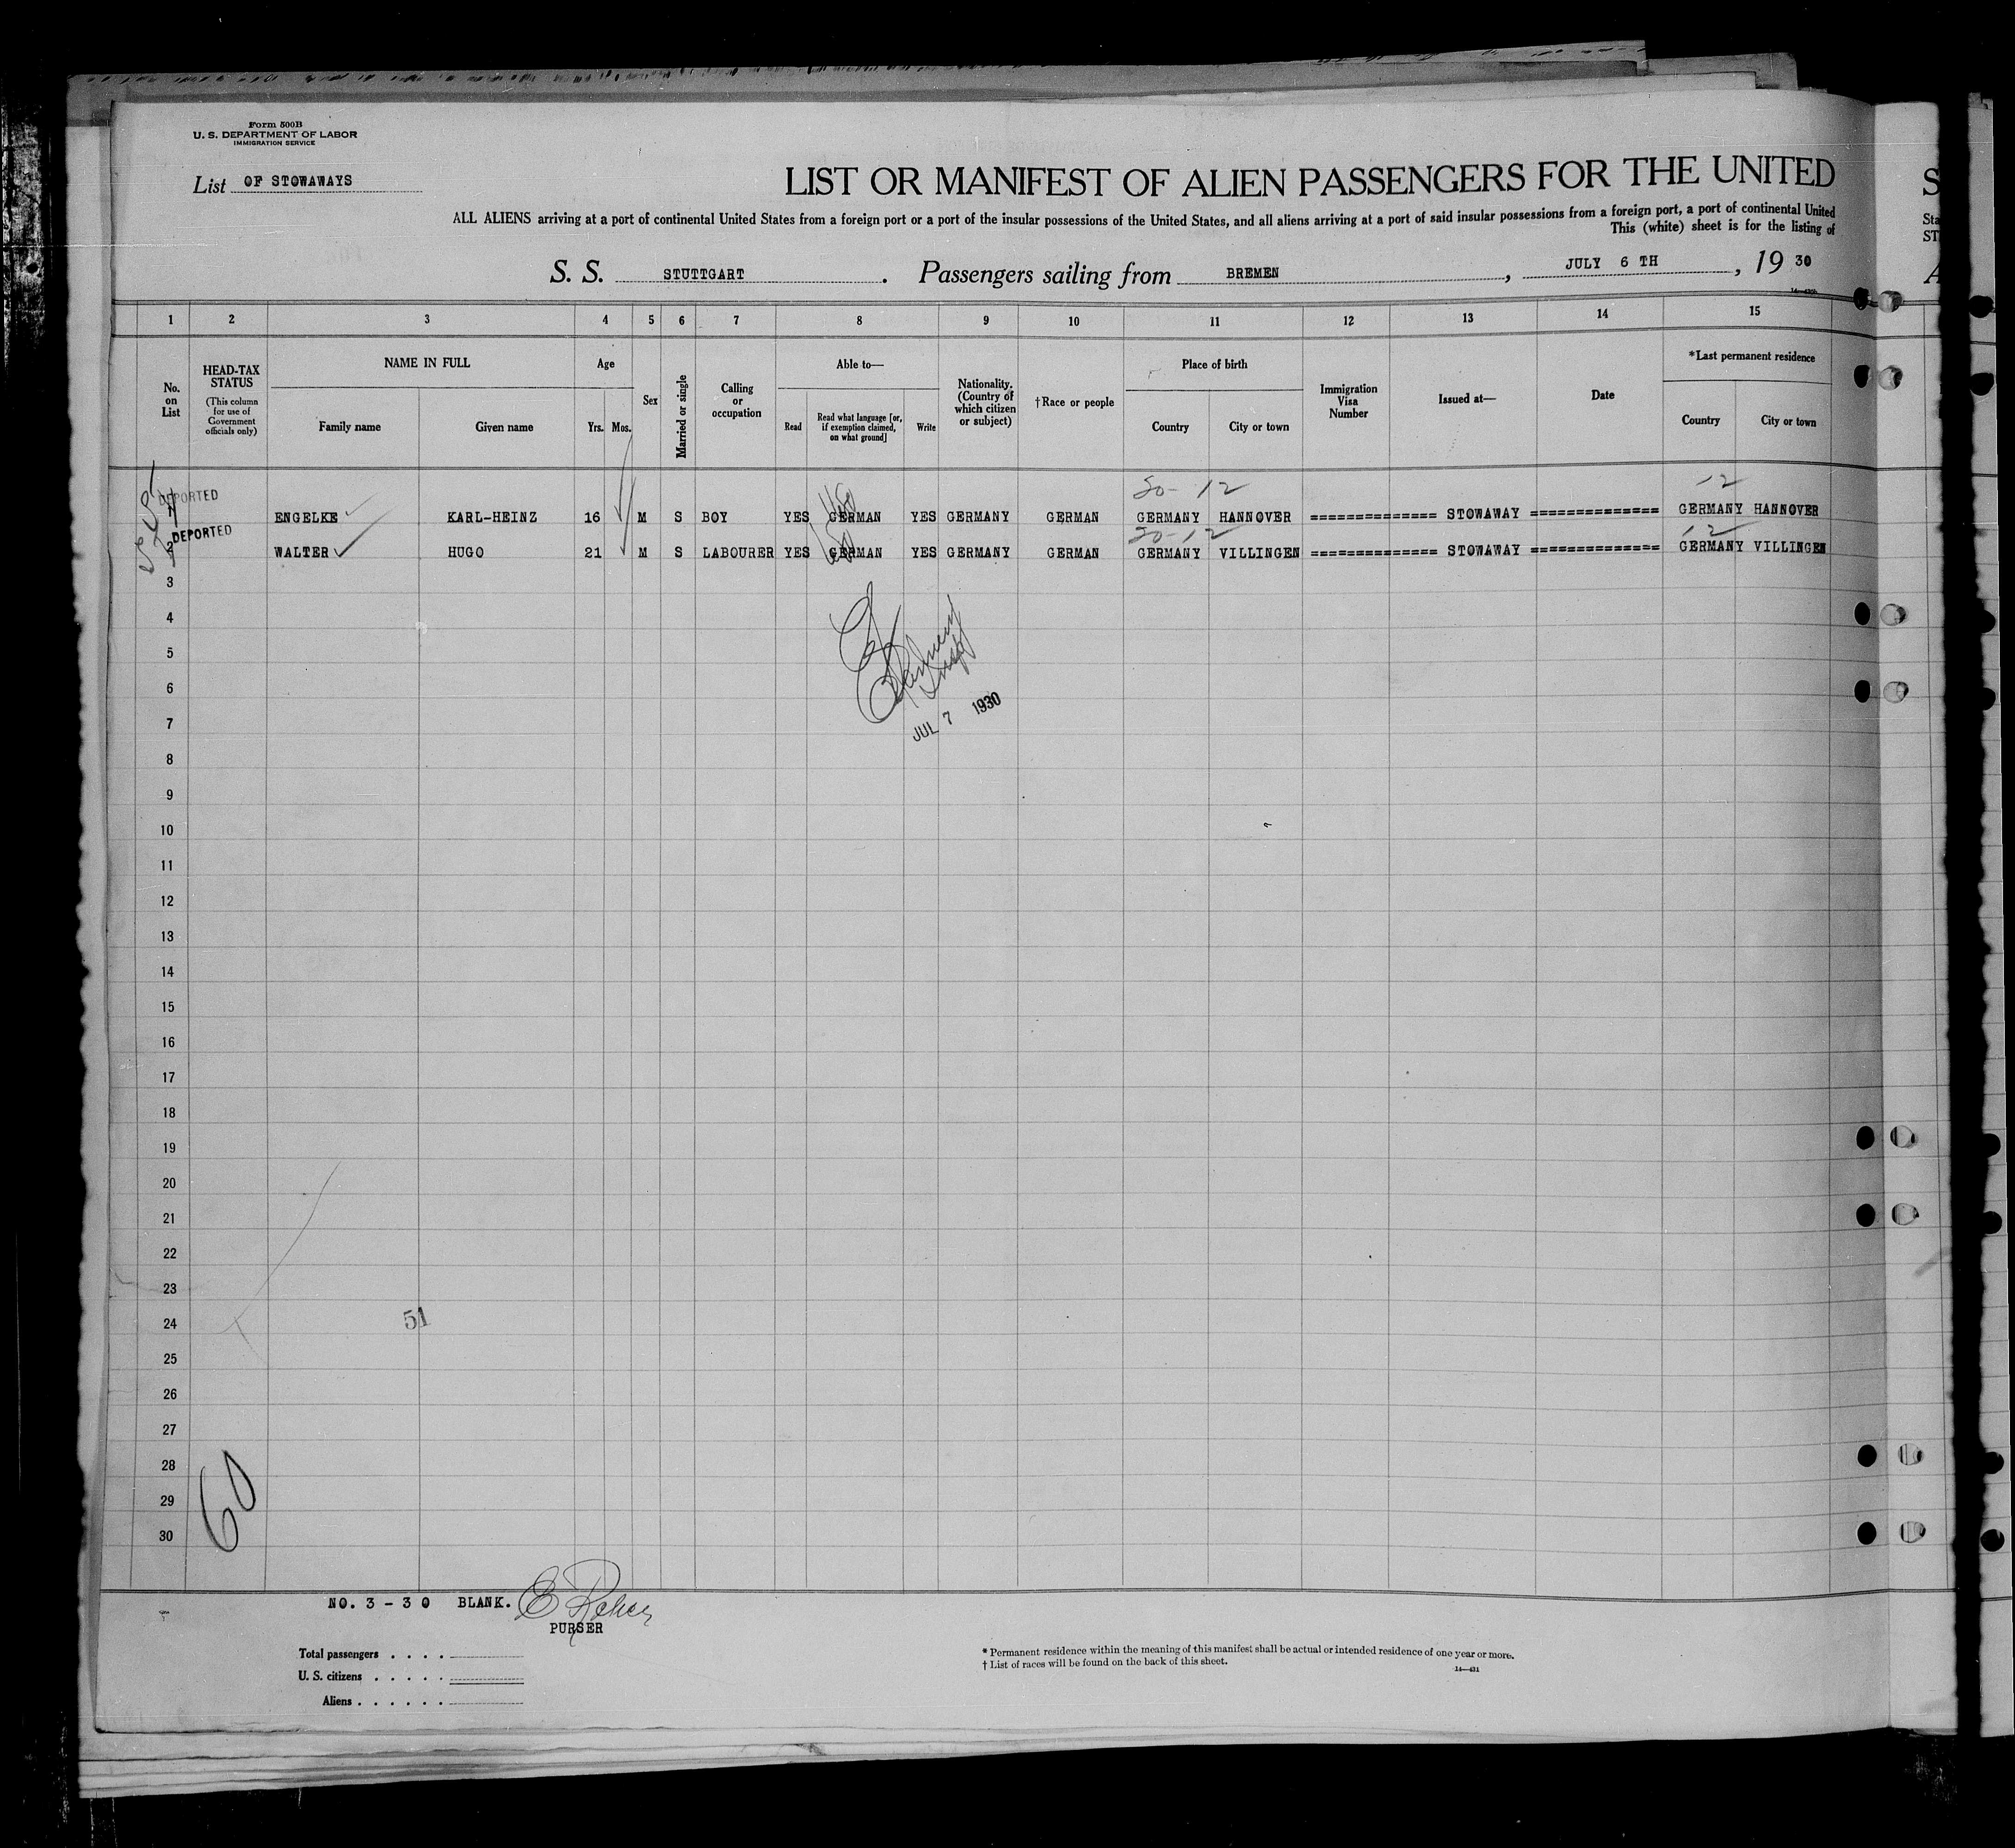 Form 500B
U. S. DEPARTMENT OF LABOR
IMMIGRATION SERVICE
List OF STOWAWAYS
LIST OR MANIFEST OF ALIEN PASSENGERS FOR THE UNITED
ALL ALIENS arriving at a port of continental United States from a foreign port or a port of the insular possessions of the United States, and all aliens arriving at a port of said insular possessions from a foreign port, a port of continental United
This (white) sheet is for the listing of
S. S. STUTTGART. Passengers sailing from BREMEN, JULY 6 TH, 19 30
1 2 3 4 5 6 7 8 9 10 11 12 13 14 15
No. on List
HEAD-TAX STATUS (This column for use of Government officials only)
NAME IN FULL
Family name Given name
Age
Yrs. Mos.
Sex
Married or single
Calling or occupation
Able to—
Read
Read what language [or, if exemption claimed, on what ground]
Write
Nationality. (Country of which citizen or subject)
†Race or people
Place of birth
Country City or town
Immigration Visa Number
Issued at—
Date
*Last permanent residence
Country City or town
20-12 12
DEPORTED
1 ENGELKE KARL-HEINZ 16 M S BOY YES GERMAN YES GERMANY GERMAN GERMANY HANNOVER ============== STOWAWAY ============== GERMANY HANNOVER
DEPORTED 20-12 12
2 WALTER HUGO 21 M S LABOURER YES GERMAN YES GERMANY GERMAN GERMANY VILLINGEN ============== STOWAWAY ============== GERMANY VILLINGEN
3
4
5
6
JUL 7 1930
7
8
9
10
11
12
13
14
15
16
17
18
19
20
21
22
23
24 51
25
26
27
28
29
30
60
NO. 3 - 30 BLANK.
PURSER
Total passengers . . . .
U. S. citizens . . . . .
Aliens . . . . . .
* Permanent residence within the meaning of this manifest shall be actual or intended residence of one year or more.
† List of races will be found on the back of this sheet.
14—431